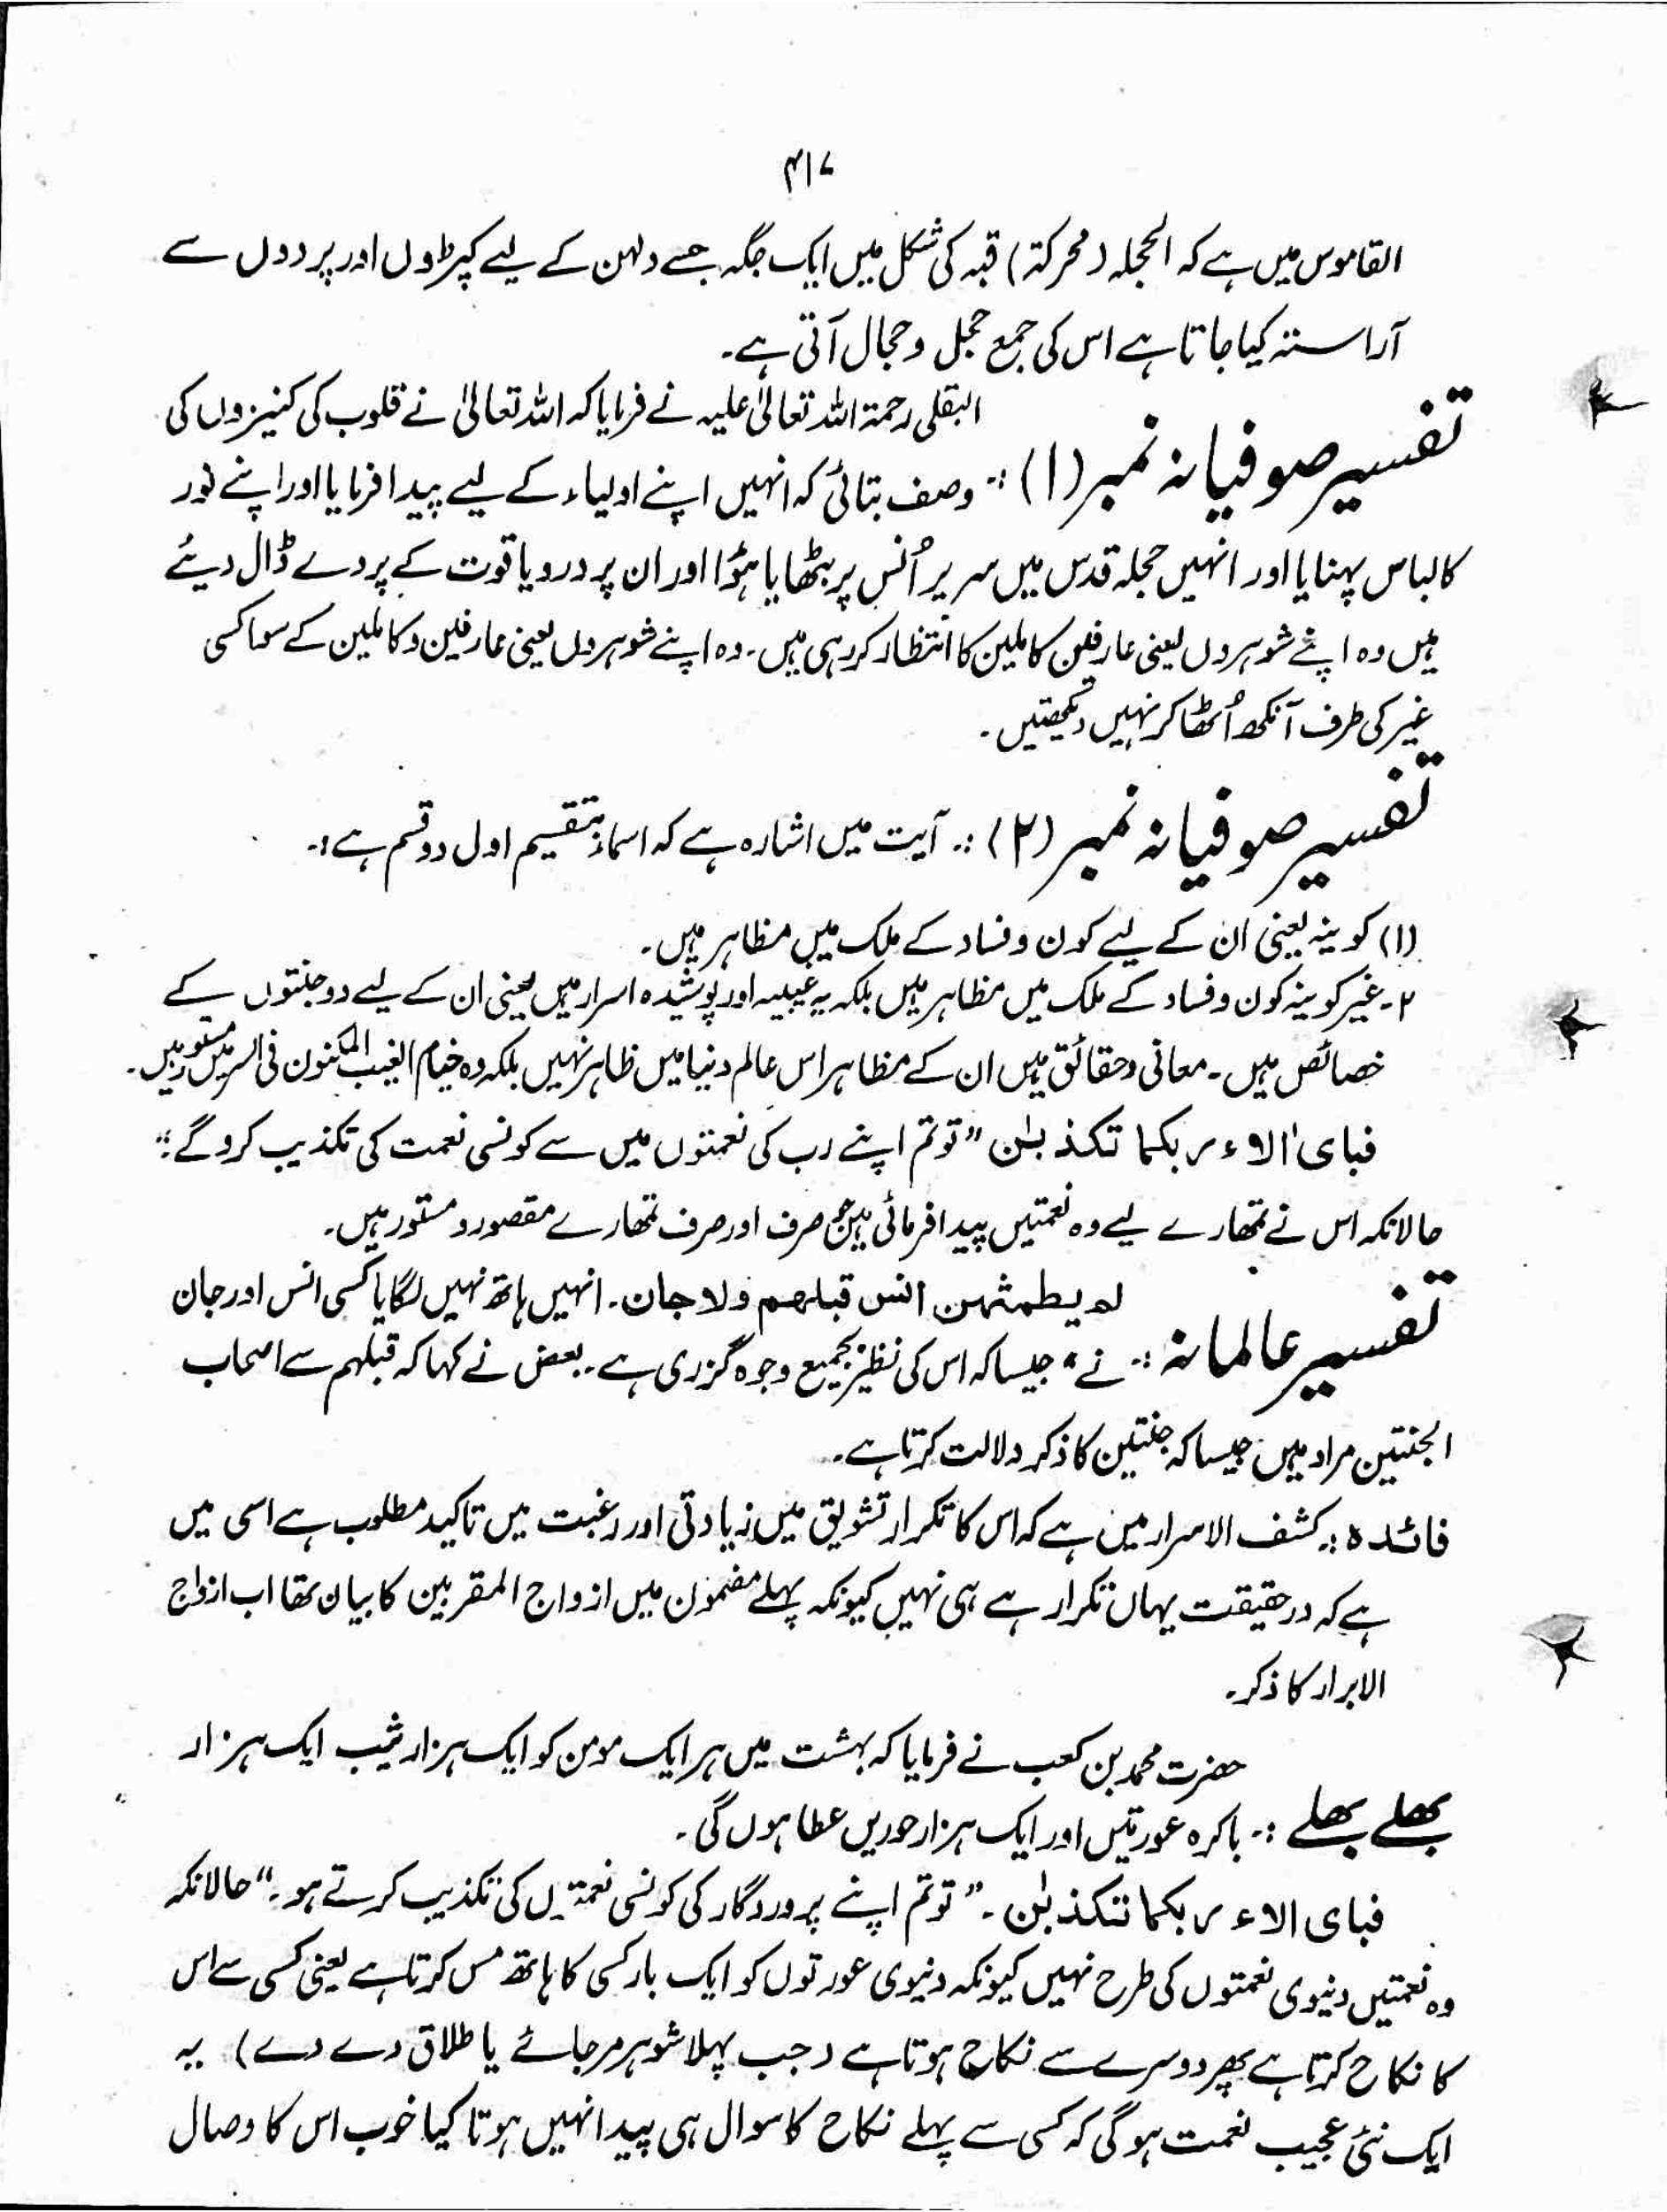 ۴۱۷
القاموس میں ہے کہ الحجلہ (محرکۃ) قبہ کی شکل میں ایک جگہ جسے دلہن کے لیے کپڑوں اور پردوں سے
آراستہ کیا جاتا ہے اس کی جمع حجل و حجال آتی ہے۔
البقلی رحمۃ اللہ تعالیٰ علیہ نے فرمایا کہ اللہ تعالیٰ نے قلوب کی کنیزوں کی
تفسیر صوفیانہ نمبر (۱) :۔ وصف بتائی کہ انہیں اپنے اولیاء کے لیے پیدا فرمایا اور اپنے نور
کا لباس پہنایا اور انہیں حجلہ قدس میں سریر اُنس پر بٹھایا ہؤا اور ان پر در و یاقوت کے پردے ڈال دیئے
ہیں وہ اپنے شوہروں یعنی عارفین کاملین کا انتظار کر رہی ہیں۔ وہ اپنے شوہروں یعنی عارفین و کاملین کے سوا کسی
غیر کی طرف آنکھ اُٹھا کر نہیں دیکھتیں۔
تفسیر صوفیانہ نمبر (۲) :۔ آیت میں اشارہ ہے کہ اسماء بتقسیم اول دو قسم ہے :۔
(۱) کوینہ یعنی ان کے لیے کون و فساد کے ملک میں مظاہر ہیں۔
۲۔ غیر کوینہ کون و فساد کے ملک میں مظاہر ہیں بلکہ یہ غیبیہ اور پوشیدہ اسرار ہیں یعنی ان کے لیے دو جنتوں کے
خصائص ہیں۔ معانی و حقائق ہیں ان کے مظاہر اس عالم دنیا میں ظاہر نہیں بلکہ وہ خیام الغیب المکنون فی السر میں مستور ہیں۔
فبای الاء ربکما تکذبٰن ”تو تم اپنے رب کی نعمتوں میں سے کونسی نعمت کی تکذیب کرو گے؛“
حالانکہ اس نے تمھارے لیے وہ نعمتیں پیدا فرمائی ہیں جو صرف اور صرف تمھارے مقصور و مستور ہیں۔
لم یطمثہن انس قبلہم ولا جان۔ انہیں ہاتھ نہیں لگایا کسی انس اور جان
تفسیر عالمانہ :۔ نے“ جیسا کہ اس کی نظیر بجمیع وجوہ گزری ہے۔ بعض نے کہا کہ قبلہم سے اصحاب
الجنتین مراد ہیں جیسا کہ جنتین کا ذکر دلالت کرتا ہے۔
فائدہ :۔ کشف الاسرار میں ہے کہ اس کا تکرار تشویق میں زیادتی اور رغبت میں تاکید مطلوب ہے اسی میں
ہے کہ در حقیقت یہاں تکرار ہے ہی نہیں کیونکہ پہلے مضمون میں ازواج المقربین کا بیان تھا اب ازواج
الابرار کا ذکر۔
حضرت محمد بن کعب نے فرمایا کہ بہشت میں ہر ایک مومن کو ایک ہزار ثیب ایک ہزار
بھلے بھلے :۔ باکرہ عورتیں اور ایک ہزار حوریں عطا ہوں گی۔
فبای الاء ربکما تکذبٰن۔ ”تو تم اپنے پروردگار کی کونسی نعمتوں کی تکذیب کرتے ہو۔“ حالانکہ
وہ نعمتیں دنیوی نعمتوں کی طرح نہیں کیونکہ دنیوی عورتوں کو ایک بار کسی کا ہاتھ مس کرتا ہے یعنی کسی سے اس
کا نکاح کرتا ہے پھر دوسرے سے نکاح ہوتا ہے (جب پہلا شوہر مر جائے یا طلاق دے دے) یہ
ایک نئی عجیب نعمت ہو گی کہ کسی سے پہلے نکاح کا سوال ہی پیدا نہیں ہوتا کیا خوب اس کا وصال